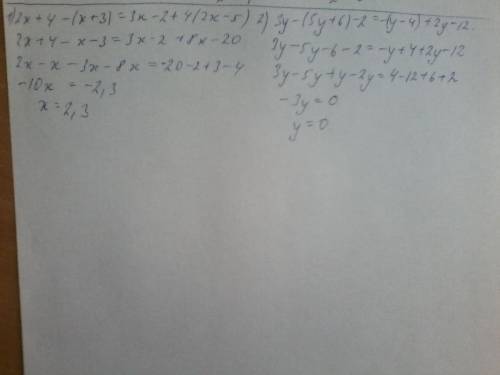 1) 2x+4-(x+3)=3x-2+4(2x-5)
2x+4-x-3=3x-2+8x-20
2x-x-3x-8x=-20-2+3-4
-10x = -2,3
x=2,3
2) 3y-(5y+6)-2=-(y-4)+2y-12
3y-5y-6-2=-y+4+2y-12
3y-5y+y-2y=4-12+6+2
-3y=0
y=0